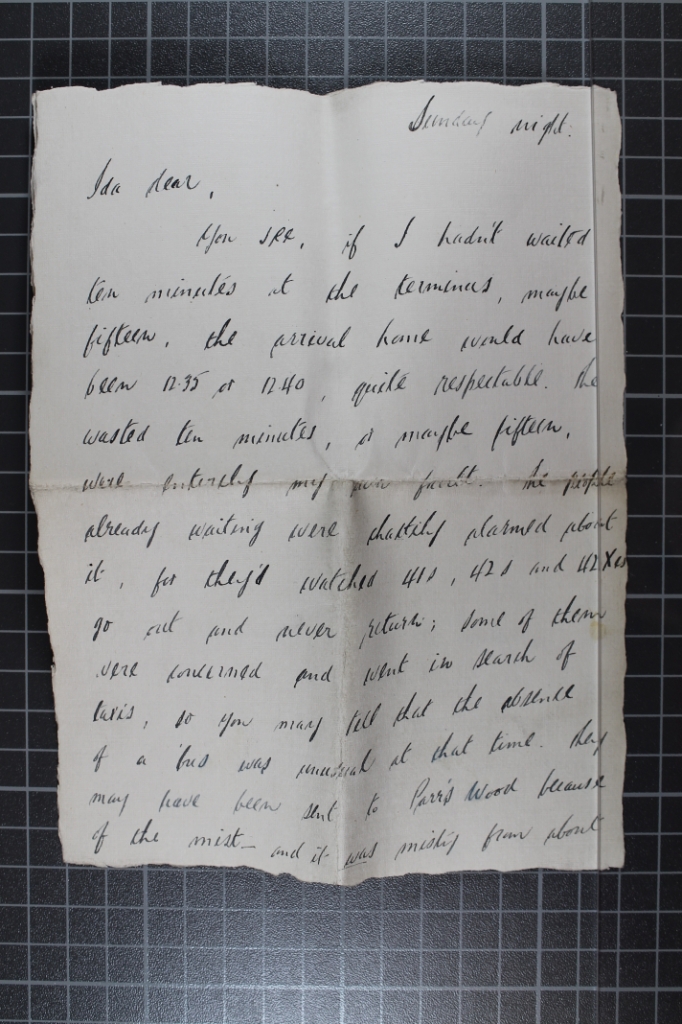 Sunday night.
Ida dear,
You see, if I hadn't waited
ten minutes at the terminus, maybe
fifteen, the arrival home would have
been 12.35 or 12.40, quite respectable. The
wasted ten minutes, or maybe fifteen,
were entirely my own fault. The people
already waiting were chattily alarmed about
it, for they'd watched 41s, 42s and 42Xs
go out and never return; some of them
were concerned and went in search of
taxis, so you may tell that the absence
of a 'bus was unusual at that time. They
may have been sent to Parr's Wood because
of the mist – and it was misty from about